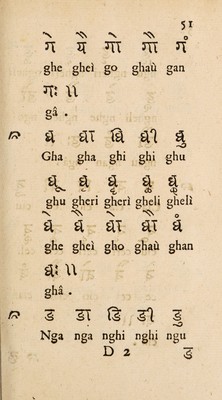 51
गे गै गो गौ गं
ghe gheì go ghaù gan
गः ॥
gâ .
घ घा घि घी घु
Gha gha ghi ghi ghu
घू घृ घॄ घॢ घॣ
ghu gheri gherì gheli ghelì
घे घै घो घौ घं
ghe gheì gho ghaù ghan
घः ॥
ghâ .
ङ ङा ङि ङी ङु
Nga nga nghi nghi ngu
D 2 ङ